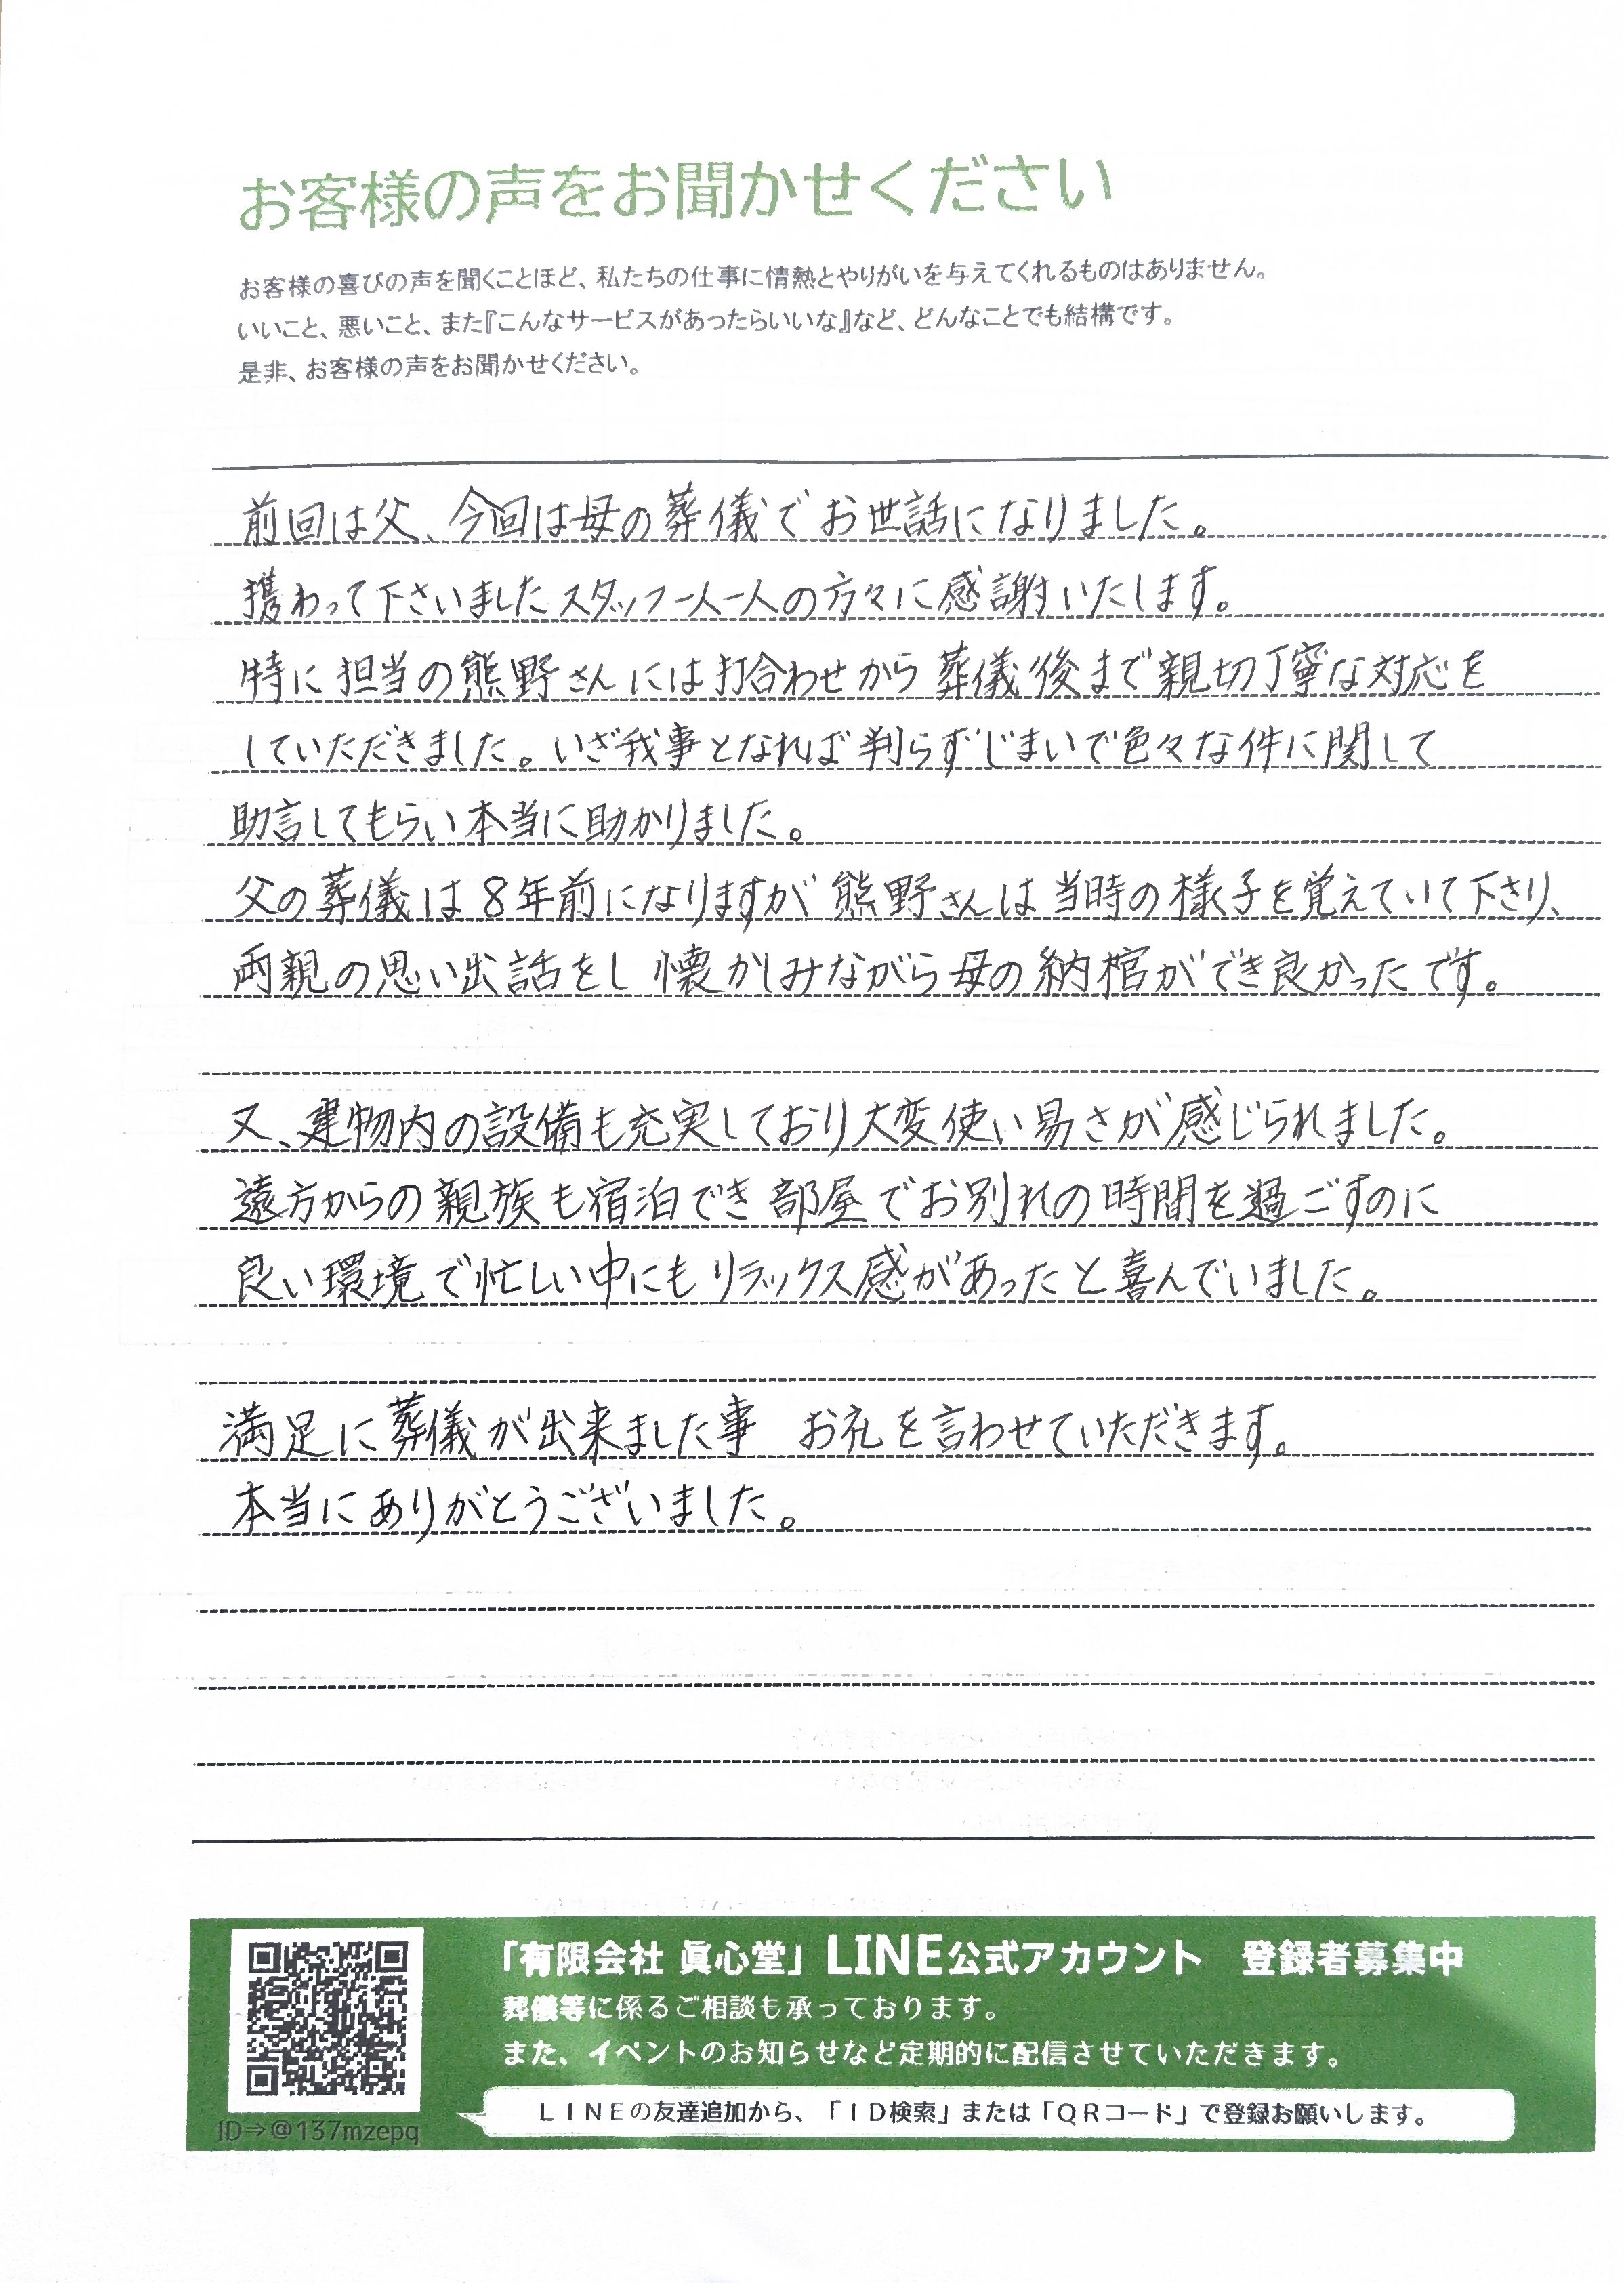 お客様の声をお聞かせください
お客様の喜びの声を聞くことほど、私たちの仕事に情熱とやりがいを与えてくれるものはありません。
いいこと、悪いこと、また『こんなサービスがあったらいいな』など、どんなことでも結構です。
是非、お客様の声をお聞かせください。
前回は父、今回は母の葬儀でお世話になりました。
携わって下さいましたスタッフ一人一人の方々に感謝いたします。
特に担当の熊野さんには打合わせから葬儀後まで親切丁寧な対応を
していただきました。いざ我事となれば判らずじまいで色々な件に関して
助言してもらい本当に助かりました。
父の葬儀は8年前になりますが熊野さんは当時の様子を覚えていて下さり、
両親の思い出話をし懐かしみながら母の納棺ができ良かったです。
又、建物内の設備も充実しており大変使い易さが感じられました。
遠方からの親族も宿泊でき部屋でお別れの時間を過ごすのに
良い環境で忙しい中にもリラックス感があったと喜んでいました。
満足に葬儀が出来ました事 お礼を言わせていただきます。
本当にありがとうございました。
「有限会社 眞心堂」LINE公式アカウント 登録者募集中
葬儀等に係るご相談も承っております。
また、イベントのお知らせなど定期的に配信させていただきます。
LINEの友達追加から、「ID検索」または「QRコード」で登録お願いします。
ID⇒@137mzepq